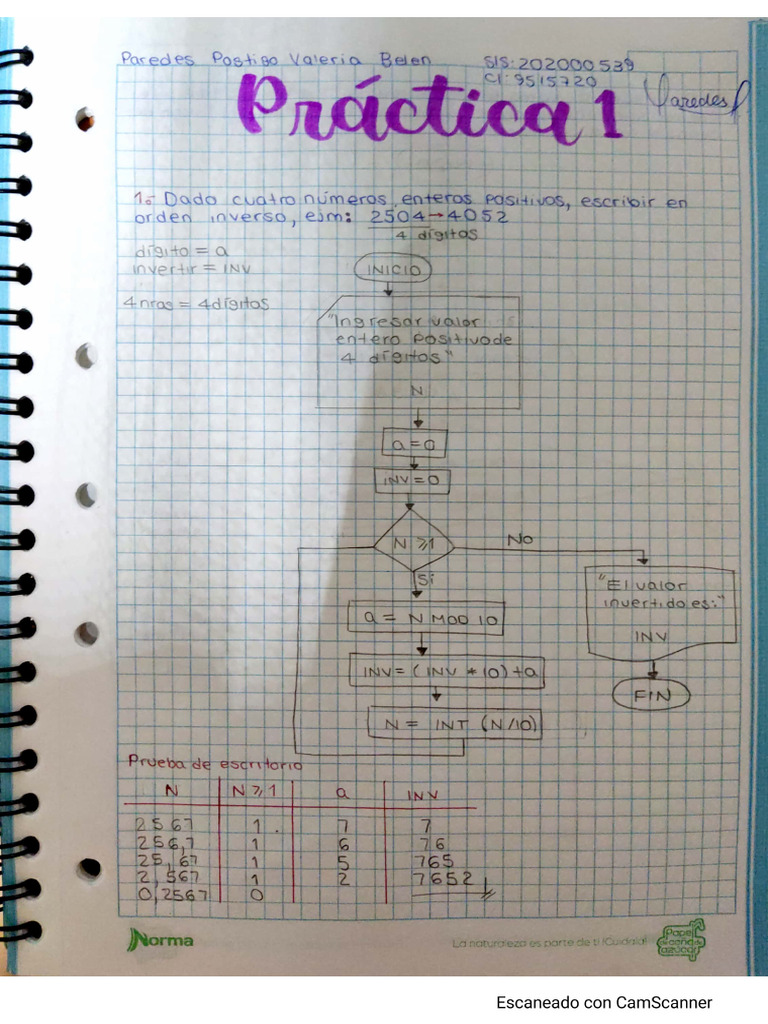 Paredes Postigo Valeria Belen SIS:202000539
CI:9515720
Paredes P
Práctica 1
1.- Dado cuatro números enteros positivos, escribir en
orden inverso, ejm: 2504→4052
4 dígitos
dígito = a
invertir = INV
4 nros = 4 dígitos
INICIO
"Ingresar valor
entero positivo de
4 dígitos"
N
a = 0
INV = 0
N ⩾ 1
No
Si
a = N MOD 10
INV = (INV * 10) + a
N = INT (N/10)
"El valor
invertido es:"
INV
FIN
Prueba de escritorio
N N ⩾ 1 a INV
2567 1 7 7
256,7 1 6 76
25,67 1 5 765
2,567 1 2 7652
0,2567 0
Norma
La naturaleza es parte de ti ¡Cuidala!
Papel de caña de azúcar
Escaneado con CamScanner